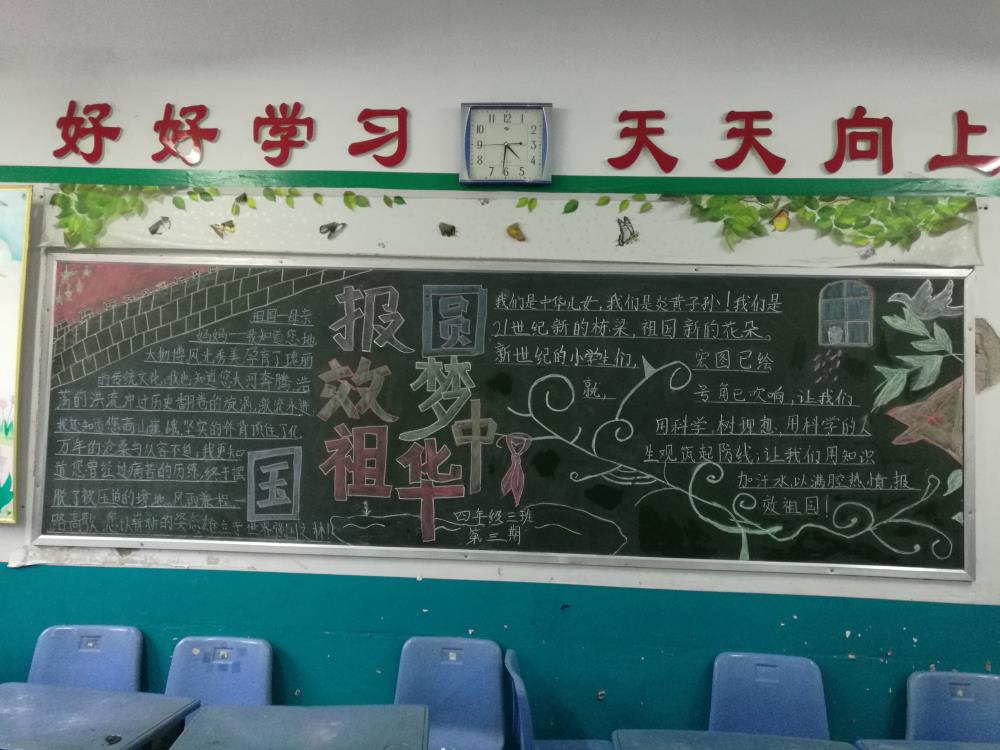 好好学习 天天向上
祖国—母亲
妈妈——我知道您地
大物博风光秀美,孕育了瑰丽
的传统文化,我也知道您大河奔腾,浩
荡的洪流冲过历史翻卷的旋涡,激流永进,
我还知道您高山巍峨,坚实的脊背顶住了亿
万年的沧桑与从容不迫,我更知
道您曾经过痛苦的历练,终于摆
脱了被压迫的境地,风雨兼程
路高歌,您以崭新的姿态雄立于世界强国之林!
报效祖国
圆梦中华
四年级三班
第三期
我们是中华儿女,我们是炎黄子孙!我们是
21世纪新的栋梁,祖国新的花朵。
新世纪的小学生们, 宏图已绘
就, 号角已吹响,让我们
用科学,树理想,用科学的人
生观筑起防线,让我们用知识
加汗水,以满腔热情,报
效祖国!